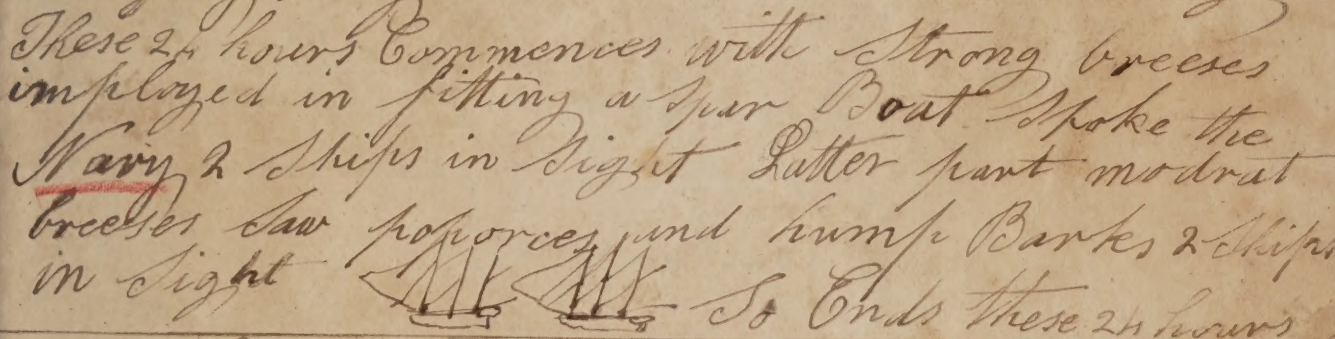 These 24 hours Commences with Strong breeses
imployed in fitting a Spar Boat Spoke the
Navy 2 Ships in Sight Latter part modrat
breeses Saw poporces and hump Barks 2 Ships
in Sight So Ends these 24 hours